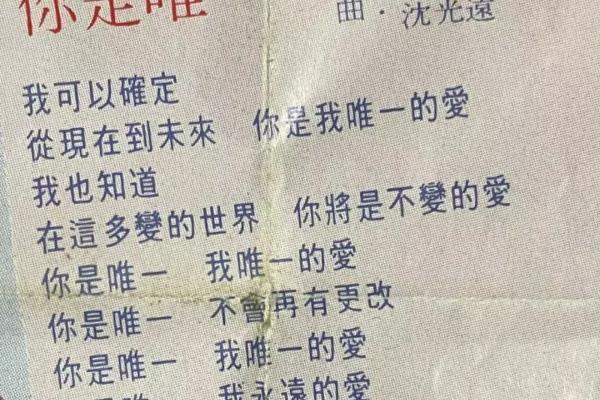 你是唯
曲·沈光遠
我可以確定
從現在到未來　你是我唯一的愛
我也知道
在這多變的世界　你將是不變的愛
你是唯一　我唯一的愛
你是唯一　不會再有更改
你是唯一　我唯一的愛
我永遠的愛